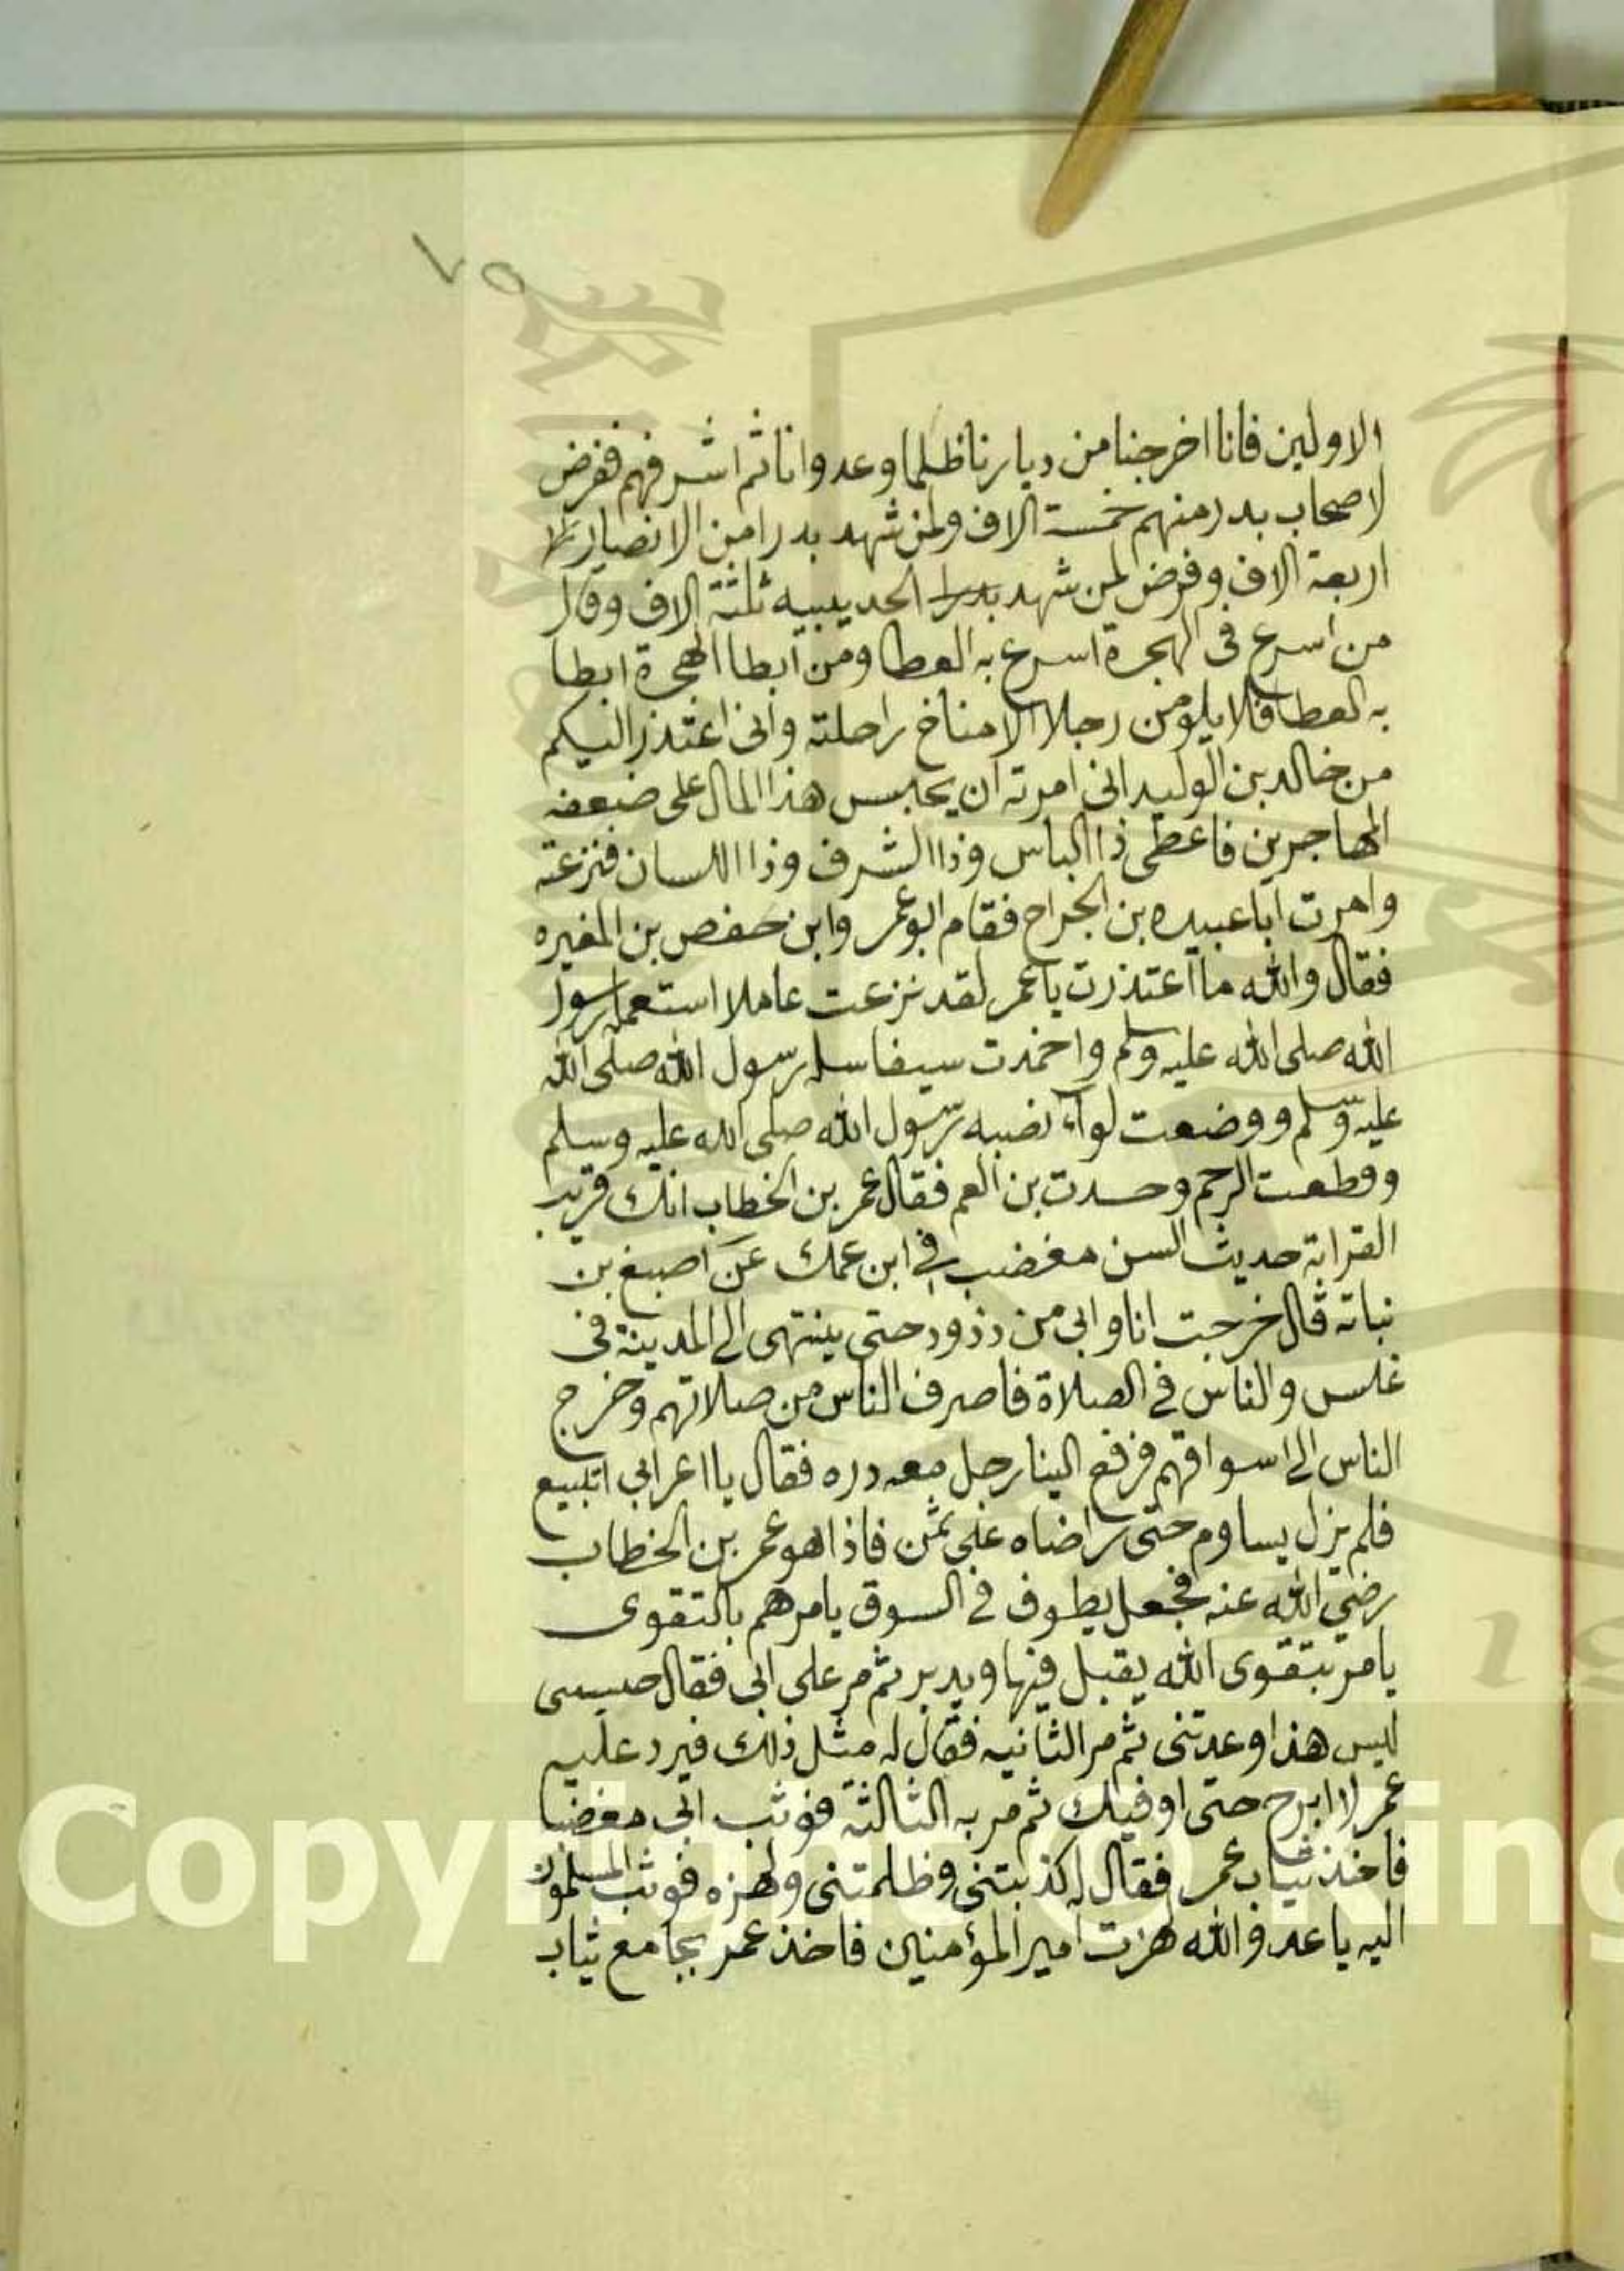 ٧٥
الاولين فانا اخرجنا من ديارنا ظلما وعدوانا ثم اشرفهم ففرض
لاصحاب بدر منهم خمسة الاف ولمن شهد بدرا من الانصار
اربعة الاف وفرض لمن شهد الحديبيه ثلثة الاف وقال
من اسرع فى الهجرة اسرع به العطا ومن ابطا الهجرة ابطا
به العطا فلا يلومن رجلا الا مناخ راحلته وانى اعتذر اليكم
من خالد بن الوليد انى امرته ان يحبس هذا المال على ضعفه
المهاجرين فاعطى ذا الباس وذا الشرف وذا اللسان فنزعته
وامرت ابا عبيده بن الجراح فقام ابو عمر وابن حفص بن المغيره
فقال والله ما اعتذرت يا عمر لقد نزعت عاملا استعمله رسول
الله صلى الله عليه وسلم واخمدت سيفا سله رسول الله صلى الله
عليه وسلم ووضعت لواء نصبه رسول الله صلى الله عليه وسلم
وقطعت الرحم وحسدت بن العم فقال عمر بن الخطاب انك قريب
القرابة حديث السن مغضب في ابن عمك عن اصبغ بن
نباته قال خرجت انا وابي من زرود حتى ينتهى الى المدينة فى
غلس والناس في الصلاة فاصرف الناس من صلاتهم وخرج
الناس الى اسواقهم فرفع الينا رجل معه دره فقال يا اعرابي اتبيع
فلم يزل يساوم حتى راضاه على ثمن فاذا هو عمر بن الخطاب
رضي الله عنه فجعل يطوف في السوق يامرهم بالتقوى
يامر بتقوى الله يقبل فيها ويدبر ثم مر على ابي فقال حبسنى
ليس هذا وعدتنى ثم مر الثانيه فقال له مثل ذلك فيرد عليه
عمر لا ابرح حتى اوفيك ثم مر به الثالثة فوثب ابي مغضبا
فاخذ ثياب عمر فقال له كذبتنى وظلمتنى ولهزه فوثب المسلمون
اليه يا عدو الله لهزت امير المؤمنين فاخذ عمر بجامع ثياب
Copyright © King